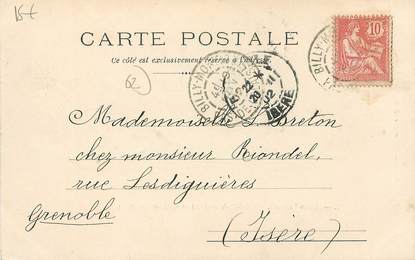 15€
CARTE POSTALE
Ce côté est exclusivement réservé à l'adresse
10
BILLY-MO
BILLY-MO
22
20 11
02
ISÈRE
62
Mademoiselle Breton
chez monsieur Riondel,
rue Lesdiguières
Grenoble
(Isère)